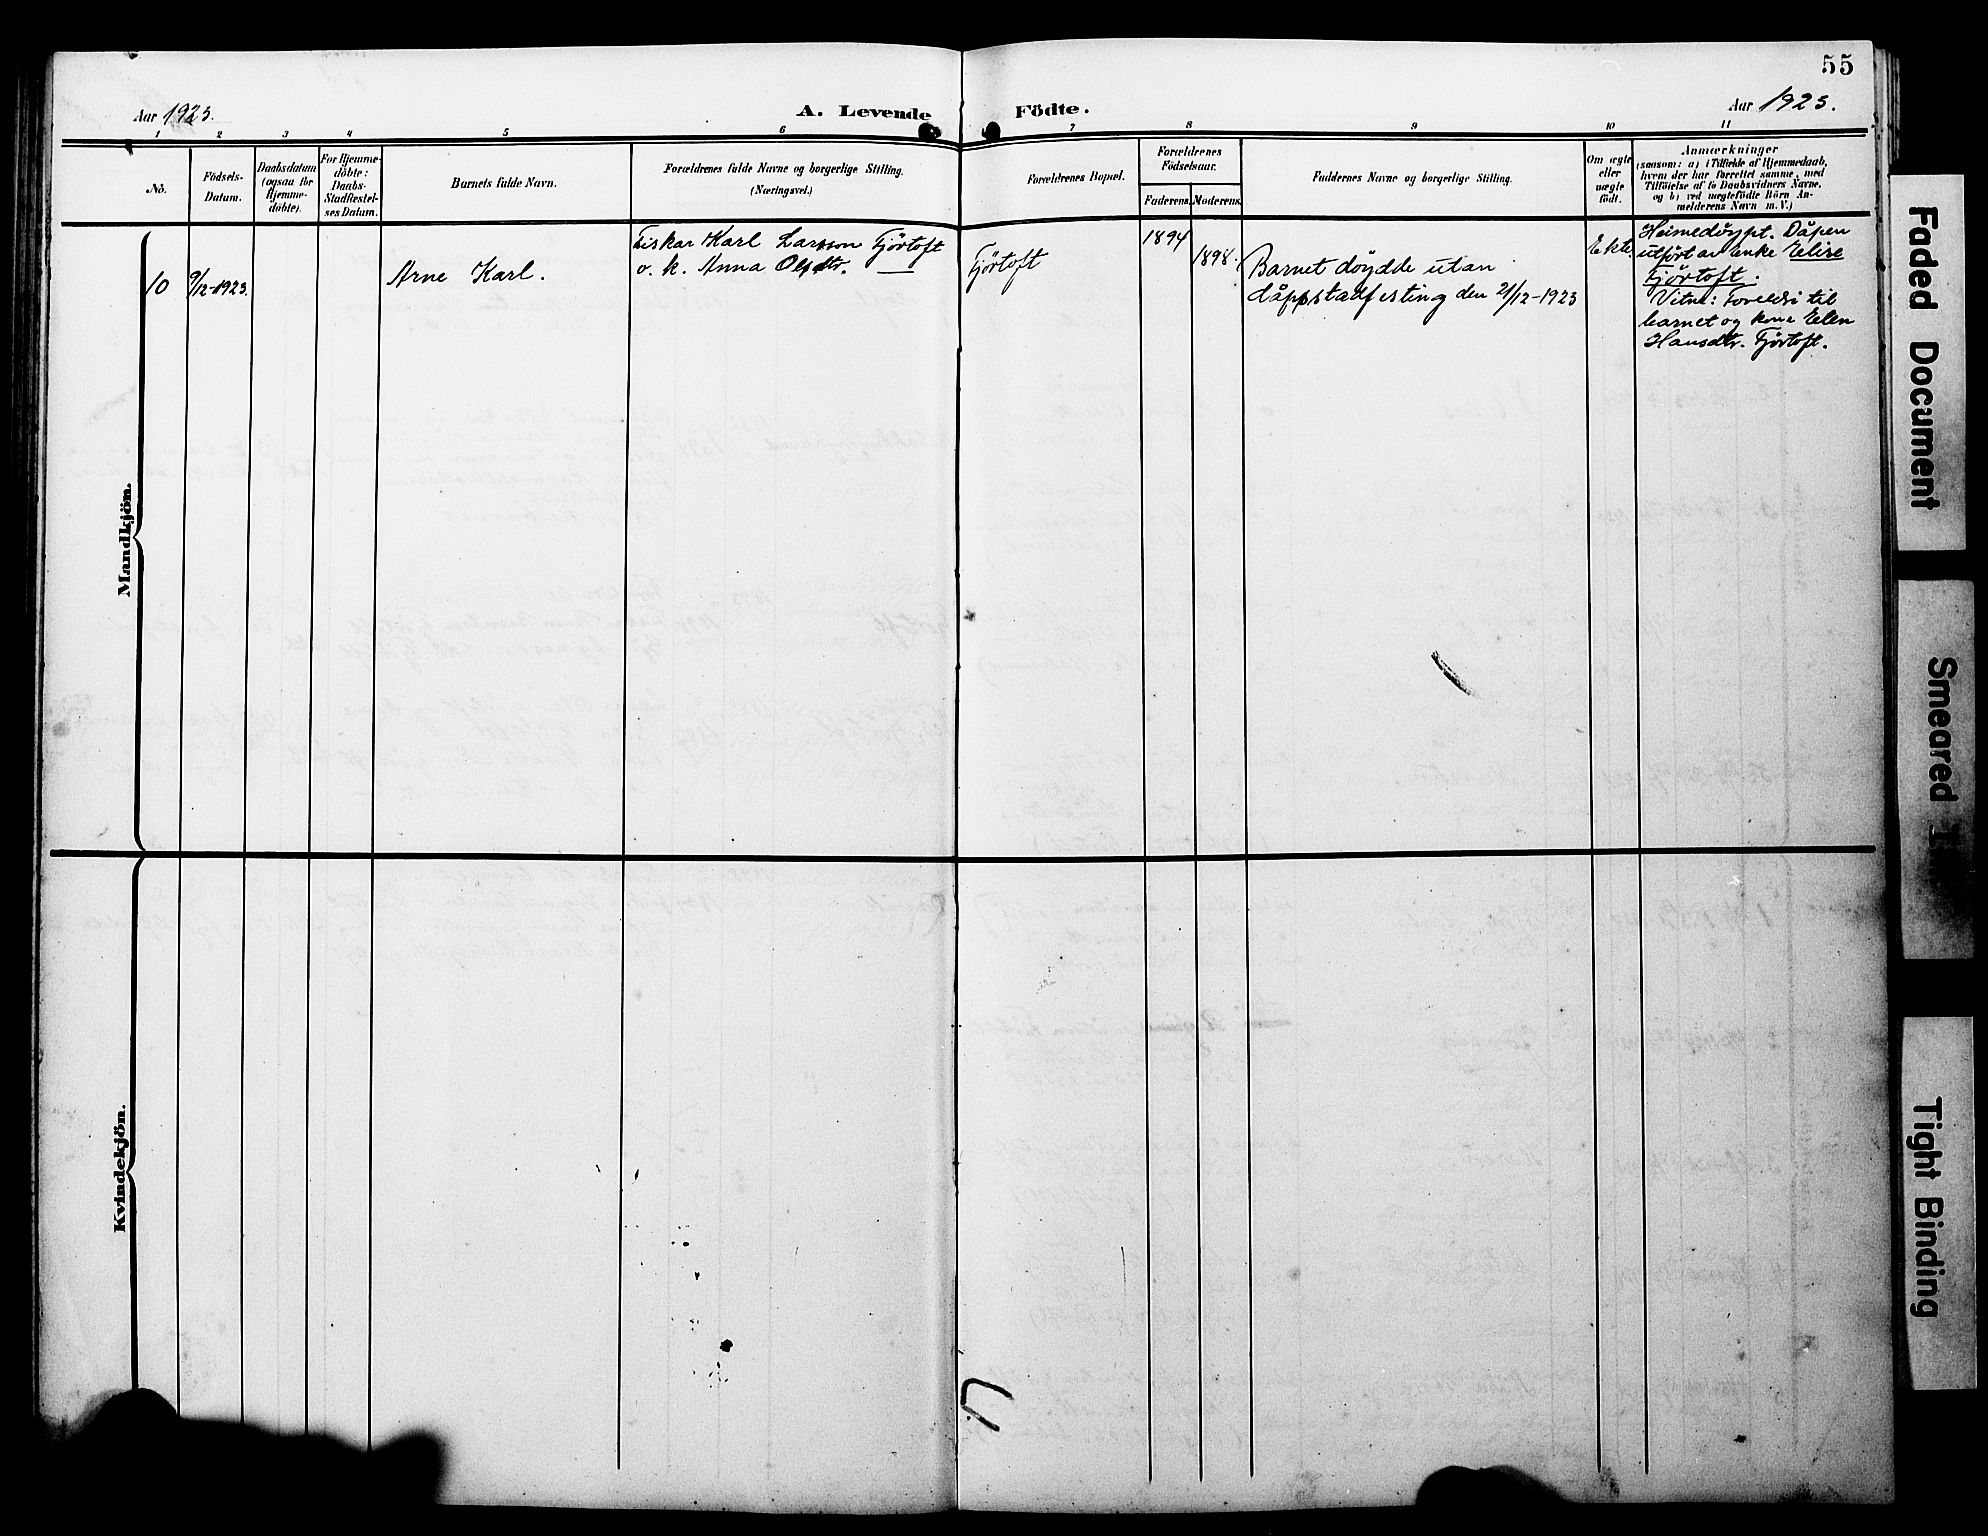 55
Aar 1923.
A. Levende Födte.
Aar 1923.
1 2 3 4 5 6 7 8 9 10 11
No.
Födsels-
Datum.
Daabsdatum
(ogsaa for
Hjemme-
döbte).
For Hjemme-
döbte:
Daabs-
Stadfæstel-
ses Datum.
Barnets fulde Navn.
Forældrenes fulde Navne og borgerlige Stilling.
(Næringsvei.)
Forældrenes Bopæl.
Forældrenes
Födselsaar.
Faderens.
Moderens.
Faddernes Navne og borgerlige Stilling.
Om ægte
eller
uægte
födt.
Anmærkninger
(saasom: a) i Tilfælde af Hjemmedaab,
hvem der har forrettet samme, med
Tilföielse af to Daabsvidners Navne,
og b) ved uægtefödte Börn An-
melderens Navn m. V.)
Mandkjön.
10
9/12-1923.
Arne Karl.
Fiskar Karl Larsson Fjörtoft
o. k. Anna Olsdtr. —
Fjörtoft
1894
1898.
Barnet döydde utan
dåpsstadfesting den 21/12-1923
Ekte.
Heimedöypt. Dåpen
utfört av enke Elise
Fjörtoft.
Vitne: Foreldri til
barnet og kone Elen
Hansdtr. Fjörtoft.
Kvindekjön.
Faded Document
Smeared
Tight Binding